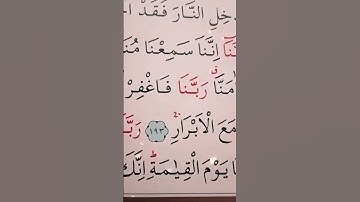 خِلِ النَّارَ فَقَدْ ا
نَّنَاۤ اِنَّنَا سَمِعْنَا مُنَا
اٰمَنَّا رَبَّنَا فَاغْفِرْ
مَعَ الْاَبْرَارِ ١٩٣ رَبَّ
يَوْمَ الْقِيٰمَةِ اِنَّكَ